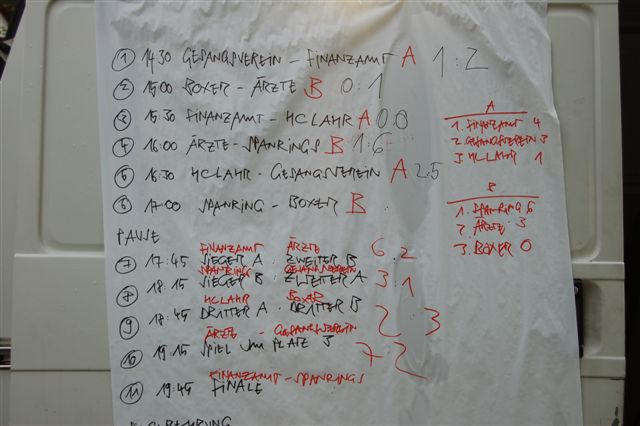 ① 14:30 GESANGSVEREIN - FINANZAMT A 1:2
② 15:00 BOXER - ÄRZTE B 0:1
③ 15:30 FINANZAMT - HC LAHR A 0:0
④ 16:00 ÄRZTE - SPANRINGS B 1:6
⑤ 16:30 HC LAHR - GESANGSVEREIN A 2:5
⑥ 17:00 SPANRING - BOXER B :
A
1. FINANZAMT 4
2. GESANGSVEREIN 3
3. HC LAHR 1
B
1. SPANRING 6
2. ÄRZTE 3
3. BOXER 0
PAUSE
FINANZAMT ÄRZTE
⑦ 17:45 SIEGER A : ZWEITER B 6:2
SPANRING GESANGSVEREIN
⑧ 18:15 SIEGER B : ZWEITER A 3:1
HC LAHR BOXER
⑨ 18:45 DRITTER A . DRITTER B 2:3
ÄRZTE - GESANGSVEREIN
⑩ 19:15 SPIEL UM PLATZ 3 7:2
FINANZAMT - SPANRINGS
⑪ 19:45 FINALE